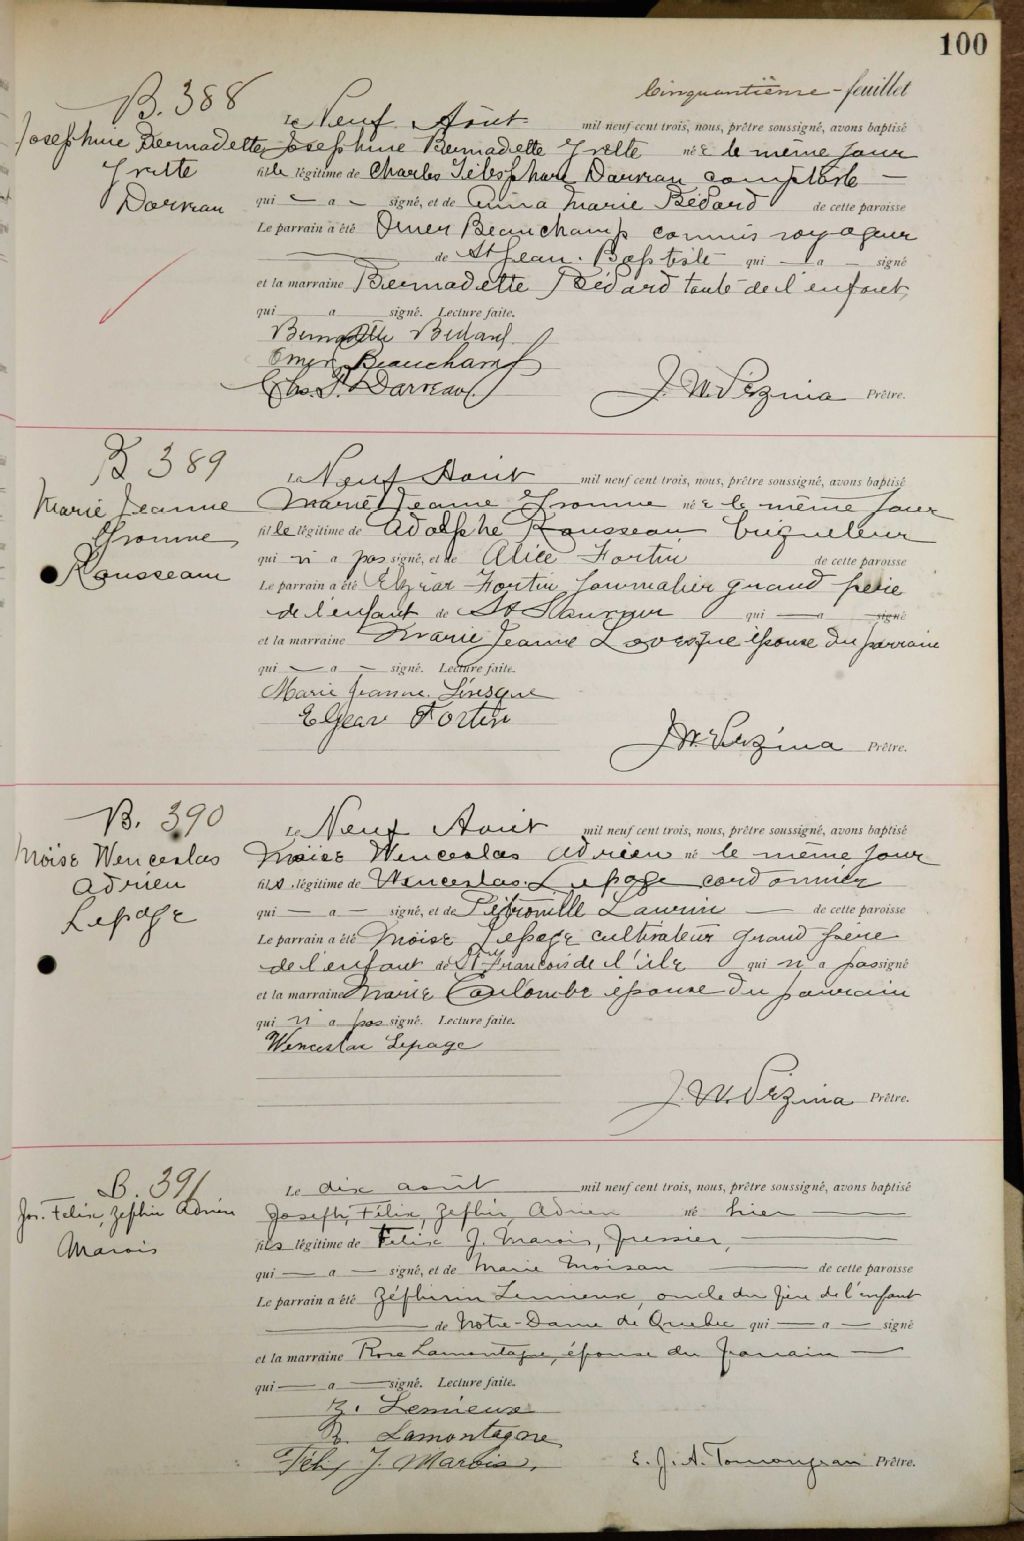 100
Cinquantième feuillet
B. 388
Josephine Bernadette
Yvette
Darveau
Le Neuf Août mil neuf cent trois, nous, prêtre soussigné, avons baptisé
Josephine Bernadette Yvette née le même jour
fille légitime de Charles Télesphore Darveau comptable —
qui — a — signé, et de Anna Marie Bédard de cette paroisse
Le parrain a été Omer Beauchamp commis voyageur
— de St Jean-Baptiste qui — a — signé
et la marraine Bernadette Bédard tante de l'enfant,
qui — a — signé. Lecture faite.
Bernadette Bédard
Omer Beauchamp
Chs. T. Darveau.
J. W. Vézina Prêtre.
B 389
Marie Jeanne
Yvonne
Rousseau
Le Neuf Août mil neuf cent trois, nous, prêtre soussigné, avons baptisé
Marie Jeanne Yvonne née le même jour
fille légitime de Adolphe Rousseau briqueleur
qui n'a pas signé, et de Alice Fortin de cette paroisse
Le parrain a été Elzear Fortin journalier grand père
de l'enfant de St Sauveur qui — a signé
et la marraine Marie Jeanne Levesque épouse du parrain
qui — a — signé. Lecture faite.
Marie Jeanne Lévesque
Elzear Fortin
J. W. Vézina Prêtre.
B. 390
Moïse Wenceslas
Adrien
Lepage
Le Neuf Août mil neuf cent trois, nous, prêtre soussigné, avons baptisé
Moïse Wenceslas Adrien né le même jour
fils légitime de Wenceslas Lepage cordonnier
qui — a — signé, et de Pétronille Laurin — de cette paroisse
Le parrain a été Moïse Lepage cultivateur grand père
de l'enfant de St François de l'isle qui n'a pas signé
et la marraine Marie Coulombe épouse du parrain
qui n'a pas signé. Lecture faite.
Wenceslas Lepage
J. W. Vézina Prêtre.
B. 391
Jos. Felix, Zephir Adrien
Marois
Le dix août mil neuf cent trois, nous, prêtre soussigné, avons baptisé
Joseph, Félix, Zephir, Adrien né hier —
fils légitime de Felix J. Marois, pressier, —
qui — a — signé, et de Marie Moisan — de cette paroisse
Le parrain a été Zéphirin Lemieux, oncle du père de l'enfant
— de Notre-Dame de Quebec qui — a — signé
et la marraine Rose Lamontagne, épouse du parrain —
qui — a — signé. Lecture faite.
Z. Lemieux
R. Lamontagne
Félix J. Marois.
E. J. A. Prêtre.